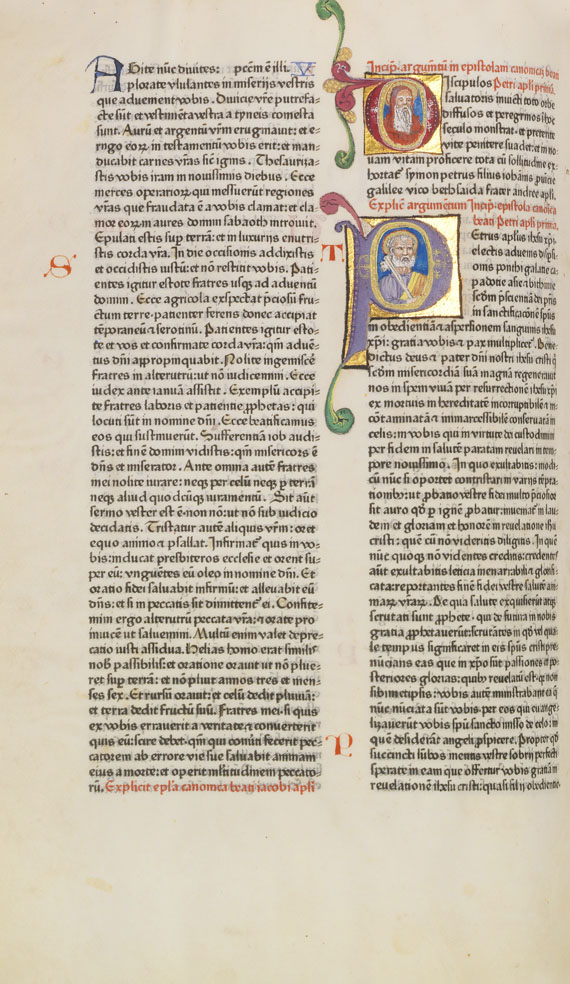 A Gite nūc diuites: pcc̄m ē illi. V
plorate vlulantes in miserijs vestris
que aduenient vobis. Diuicie vr̄e putrefa⸗
cte sūt et vestimēta vestra a tyneis comesta
sunt. Aurū et argentū vr̄m eruginauit: et e⸗
rugo eoꝝ in testamentū vobis erit: et man⸗
ducabit carnes vr̄as sic ignis. Thesaurisa⸗
stis vobis iram in nouissimis diebus. Ecce
merces operarioꝝ qui messuerūt regiones
vr̄as que fraudata ē a vobis clamat: et cla⸗
mor eoꝝ in aures domini sabaoth introiuit.
Epulati estis sup terrā: et in luxurijs enutri⸗
stis corda vr̄a. In die occisionis addixistis
et occidistis iustū: et nō restitit vobis. Pati⸗
S
entes igitur estote fratres usqꝫ ad aduentū
domini. Ecce agricola exspectat p̄ciosū fru⸗
ctum terre: patienter ferens donec accipiat
tēporaneū & serotinū. Patientes igitur esto⸗
te et vos et confirmate corda vr̄a: qm̄ aduē⸗
tus dn̄i appropinquabit. Nolite ingemiscē
fratres in alterutrū: ut nō iudicemini. Ecce
iudex ante ianuā assistit. Exemplū accipi⸗
te fratres laboris et patientie, ꝓphetas: qui
locuti sūt in nomine dn̄i. Ecce beatificamus
eos qui sustinuerūt. Sufferentiā iob audi⸗
stis: et finē domini vidistis: qm̄ misericors ē
dn̄s et miserator. Ante omnia autē fratres
mei nolite iurare: neqꝫ per celū neqꝫ ꝑ terrā
neqꝫ aliud quodcūqꝫ iuramentū. Sit aūt
sermo vester est ē: non nō: ut nō sub iudicio
decidatis. Tristatur autē aliquis vr̄m: oret
equo animo & psallat. Infirmat̄ quis in vo⸗
bis: inducat presbiteros ecclesie et orent su⸗
per eū: vnguētes eū oleo in nomine dn̄i. Et
oratio fidei saluabit infirmū: et alleuabit eū
dn̄s: et si in peccatis sit dimittent̄ ei. Confite⸗
mini ergo alterutrū peccata vr̄a: & orate pro
inuicē ut saluemini. Multū enim valet depre⸗
catio iusti assidua. Helias homo erat similis
nob̄ passibilis: et oratione orauit ut nō plue⸗
ret sup terrā: et nō pluit annos tres et men⸗
ses sex. Et rursū orauit: et celū dedit pluuiā:
et terra dedit fructū suū. Fratres mei si quis
ex vobis errauerit a veritate, & conuerterit
quis eū: scire debet, qm̄ qui conuti fecerit pec⸗
catorem ab errore vie sue saluabit animam
eius a morte: et operit mlt̄itudinem peccato⸗
rū. Explicit epl̄a canonica beati iacobi apl̄i
Incip̄. argumētū in epistolam canonicā beati
Petri apl̄i primā.
D Iscipulos
saluatoris inuicti toto orbe
diffusos et peregrinos i hoc
seculo monstrat, et preterite
vite penitere suadet: et in no⸗
uam vitam proficere tota cū sollitudine ex⸗
hortat̄ symon petrus filius iohānis, ꝓuicie
galilee vico bethsaida frater andree apl̄i.
Explic̄ argumentum Incip̄. epistola canōica
beati Petri apl̄i prima.
P Etrus apl̄us ih̄esu xp̄i
T
electis aduenis disp̄si⸗
onis ponthi galatie ca⸗
padocie asie & bithinie
scd̄m p̄scientiā dei pr̄is
in sanctificacōnē sp̄us
in obedientiā & aspersionem sanguinis ih̄esu
xp̄i: gratia vobis & pax multiplicet̄. Bene⸗
dictus deus & pater dn̄i nostri ih̄esu cristi q̄
scd̄m misericordiā suā magnā regenerauit
nos in spem viuā per resurrectionē ih̄esu xp̄i
ex mortuis in hereditatē incorruptibilē & in⸗
cōtaminatā & immarcessibilē conseruatā in
celis: in vobis qui in virtute dei custodimini
per fidem in salutē paratam reuelari in tem⸗
pore nouissimo. In quo exultabitis: modi⸗
cū nūc si oportet contristari in varijs tēpta⸗
tionibꝫ: ut ꝓbatio vestre fidei multo p̄ciosior
sit auro qd̄ ꝑ ignē ꝓbatur: inueniat̄ in lau⸗
dem et gloriam et honorē in reuelatione ih̄u
cristi: quē cū nō videritis diligitis. In quē
nūc quoqꝫ nō videntes creditis: credentes
aūt exultabitis leticia inenarrabili & glorifi⸗
cata: reportantes finē fidei vestre salutē ani⸗
marꝝ vr̄arꝝ. De qua salute exquisierūt atqꝫ
scrutati sunt ꝓphete, qui de futura in nobis
gratia ꝓphetauerūt: scrutātes in qd̄ vel qua⸗
le tempus significaret in eis sp̄us cristi: pre⸗
nūcians eas que in xp̄o sūt passiones et po⸗
steriores glorias: quibꝫ reuelatū est: qꝫ non
sibimetipsis: vobis autē ministrabant ea q̄
nūc nūciata sūt vobis per eos qui euange⸗
lizauerūt vobis sp̄u sancto misso de celo: in
quē desiderāt angeli ꝓspicere. Propter qd̄
P
succincti lūbos mentis vestre sobrij perfecte
sperate in eam que offertur vobis gratiā in
reuelationē ih̄esu cristi: quasi filij obedientie